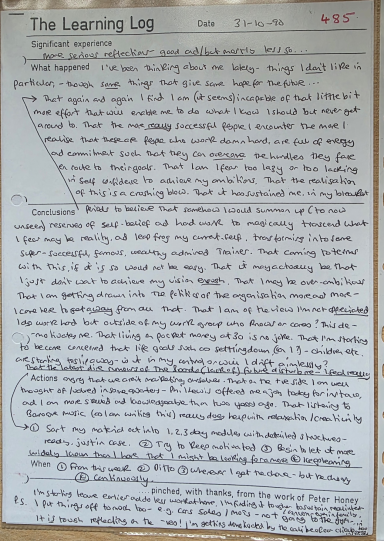 The Learning Log Date 31-10-90 485
Significant experience
more serious reflections good and/but mostly less so...
What happened I've been thinking about me lately - things I don't like in
particular, - though some things that give some hope for the future...
→ That again and again I find I am (it seems) incapable of that little bit
more effort that will enable me to do what I know I should but never get
around to. That the more really successful people I encounter the more I
realise that these are people who work damn hard, are full of energy
and commitment such that they can overcome the hurdles they face
en route to their goals. That I am far too lazy or too lacking
in self confidence to achieve my ambitions. That the realisation
of this is a crushing blow. That it has sustained me, in my bleakest
Conclusions periods to believe that somehow I would summon up (to now
unseen) reserves of self-belief and hard work to magically transcend what
I fear may be reality, and leap frog my current self, transforming into some
super-successful, famous, wealthy admired Trainer. That coming to terms
with this, if it is so would not be easy. That it may actually be that
I just don't want to achieve my vision enough. That I may be over ambitious
That I am getting drawn into the politics of the organisation more and more -
I came here to get away from all that. That I am of the view I'm not appreciated
I do work hard but outside of my work group who knows or cares? This de-
motivates me. That living on pocket money at 30 is no joke. That I'm starting
to become concerned that life goals such as settling down (on 1?) - children etc,
are starting to slip away - is it in my control or will I drift aimlessly?
That the latest dire rumours of the
Actions angry that we aren't marketing ourselves. That on the +ve side I am well
thought of indeed in some quarters - Phil Lewis offered me a job today for instance,
and I am more skilled and knowledgeable than two years ago. That listening to
Baroque music (as I am writing this) really does help with relaxation/creativity
→ ① Sort my material out into 1,2,3 day modules with detailed structures -
ready, just in case. ② Try to keep motivated ③ Begin to let it more
widely known than here that I might be looking for a move ④ Keep learning
When ① From this week ② Ditto ③ whenever I get the chance - but be choosy
④ Continuously
...pinched, with thanks, from the work of Peter Honey
I'm starting leave earlier and do less work at home, I'm finding it tougher to sustain
P.S. I put things off to much too - e.g. cars sales / MOTs - not going to the gym -
It is tough reflecting on the